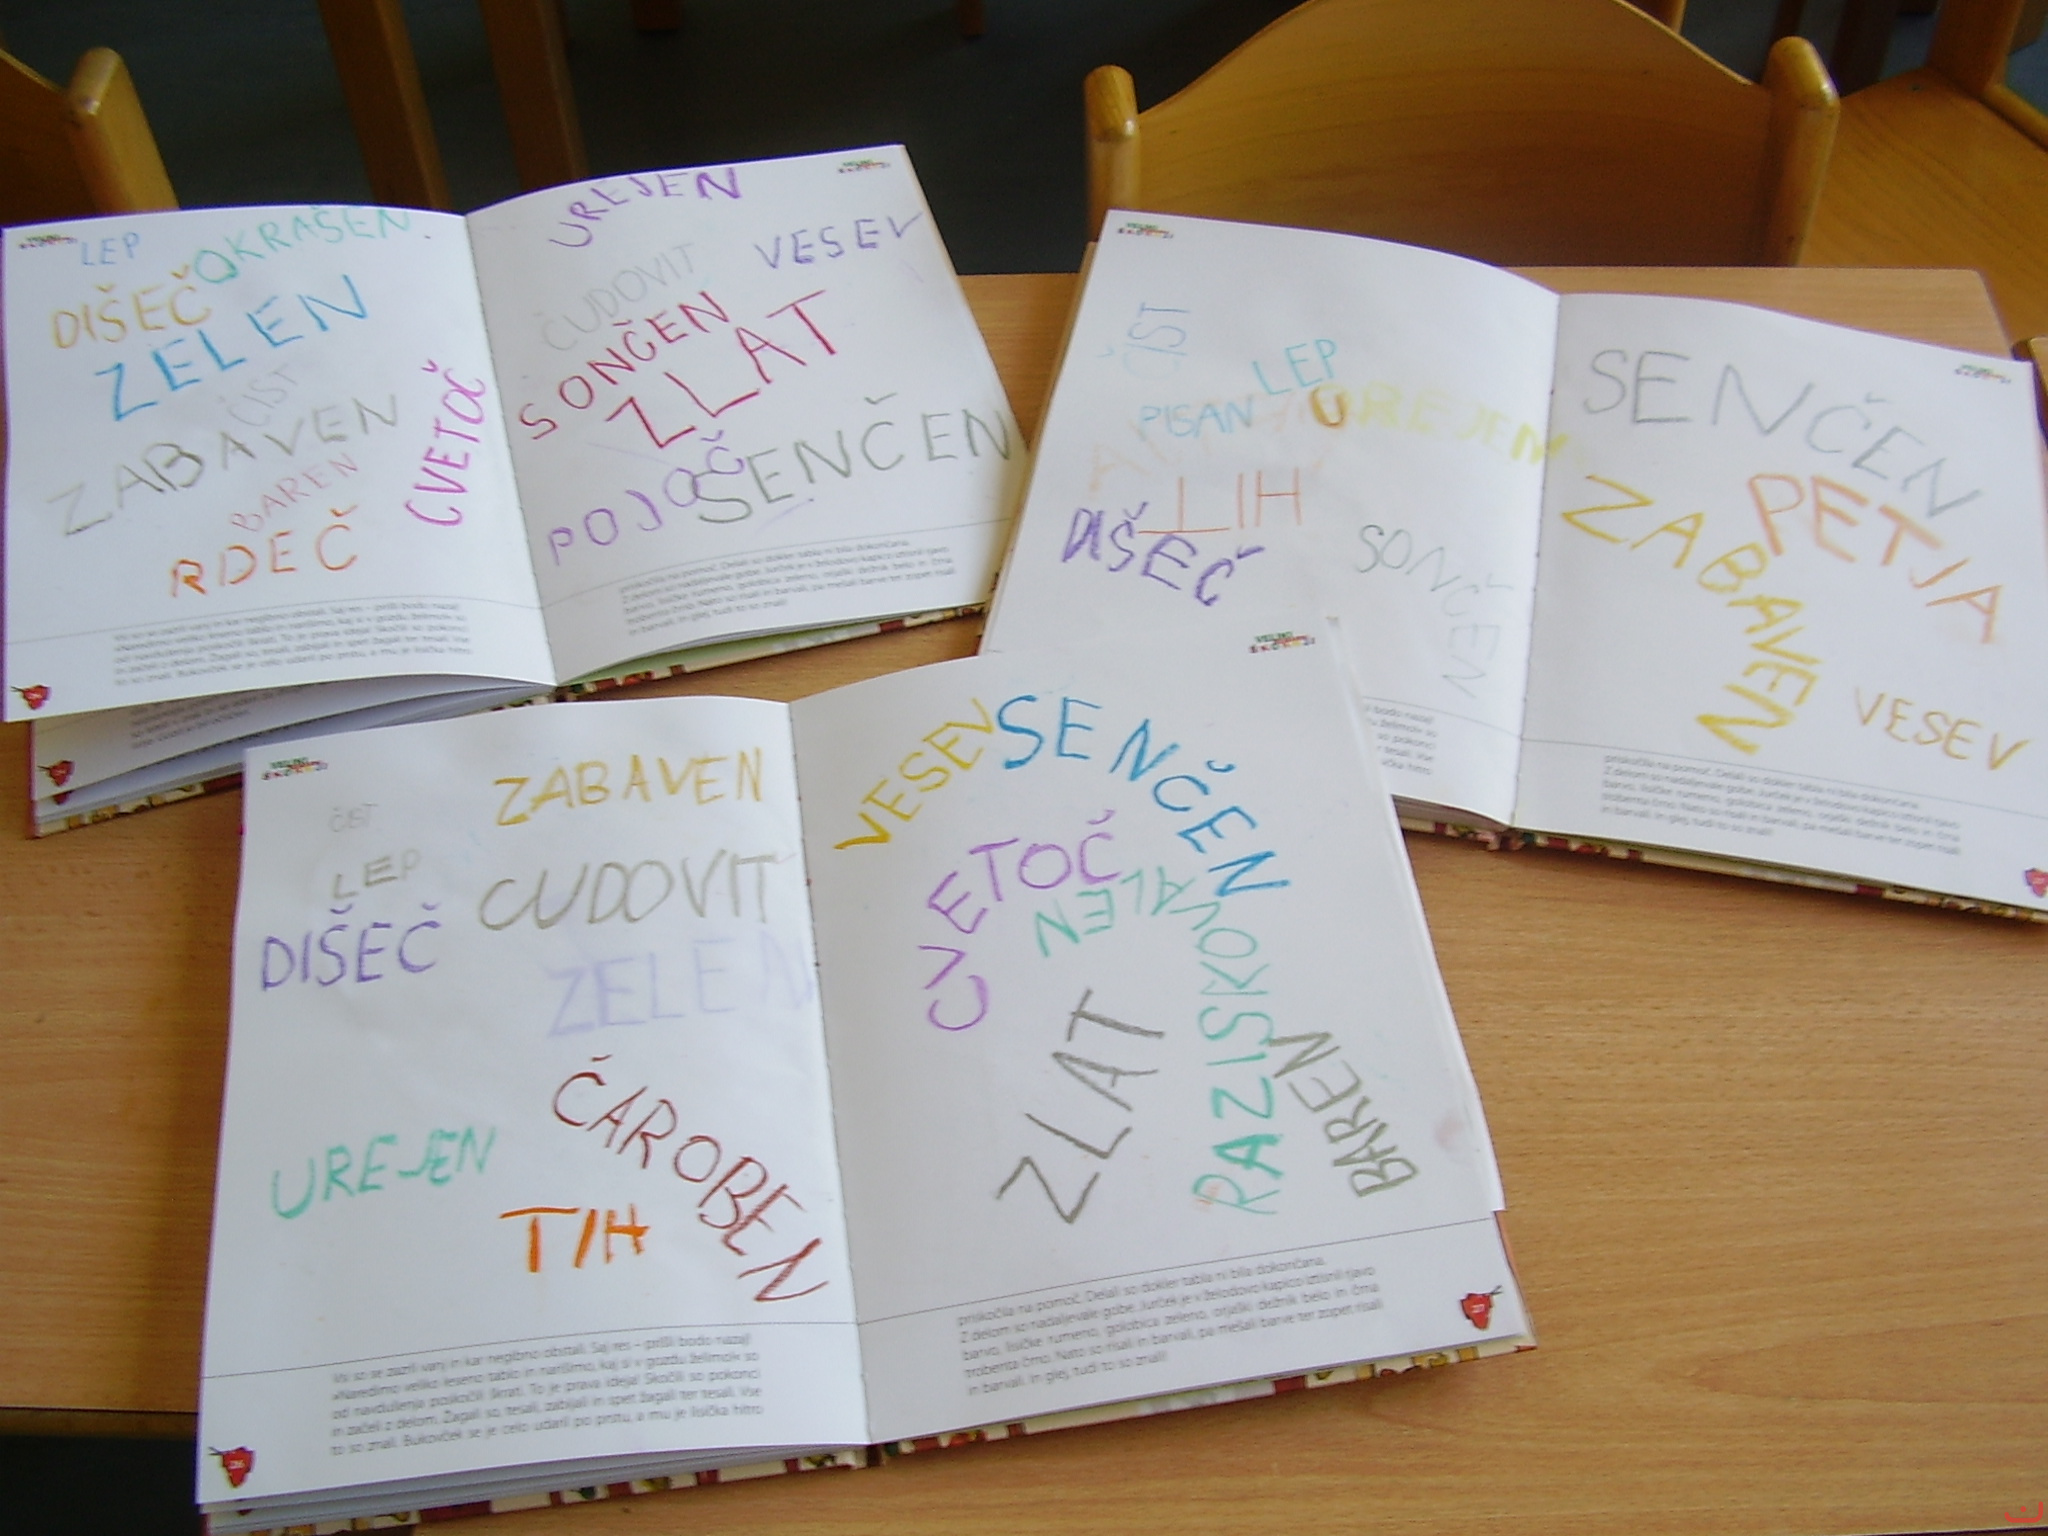 LEP
OKRAŠEN
DIŠEČ
ZELEN
ČIST
ZABAVEN
CVETOČ
BAREN
RDEČ
Vsi so se zazrli vanj in kar negibno obstali. Saj res – prišli bodo nazaj!
UREJEN
VESEV
ČUDOVIT
SONČEN
ZLAT
POJOČ
SENČEN
priskočila na pomoč. Delali so dokler tabla ni bila dokončana.
Z delom so nadaljevale gobe. Jurček je v želodovo kapico iztisnil rjavo
barvo, lisičke rumeno, golobica zeleno, orjaški dežnik belo in črna
trobenta črno. Nato so risali in barvali, pa mešali barve ter zopet risali
in barvali. In glej, tudi to so znali!
VELIKO
ČIST
LEP
PISAN
UREJEN
TIH
DIŠEČ
SONČEN
SENČEN
PETJA
ZABAVEN
VESEV
priskočila na pomoč. Delali so dokler tabla ni bila dokončana.
Z delom so nadaljevale gobe. Jurček je v želodovo kapico iztisnil rjavo
barvo, lisičke rumeno, golobica zeleno, orjaški dežnik belo in črna
trobenta črno. Nato so risali in barvali, pa mešali barve ter zopet risali
in barvali. In glej, tudi to so znali!
VELIKO
ZABAVEN
ČIST
LEP
CUDOVIT
DIŠEČ
ZELEN
ČAROBEN
UREJEN
TIH
Vsi so se zazrli vanj in kar negibno obstali. Saj res – prišli bodo nazaj!
»Naredimo veliko leseno tablo in narišimo, kaj si v gozdu želimo!« so
od navdušenja poskočili škrati. To je prava ideja! Skočili so pokonci
in začeli z delom. Žagali so, tesali, zabijali in spet žagali ter tesali. Vse
to so znali. Bukovček se je celo udaril po prstu, a mu je lisička hitro
26
VELIKO
VESEV
SENČEN
CVETOČ
RAZISKOVALEN
ZLAT
BAREN
priskočila na pomoč. Delali so dokler tabla ni bila dokončana.
Z delom so nadaljevale gobe. Jurček je v želodovo kapico iztisnil rjavo
barvo, lisičke rumeno, golobica zeleno, orjaški dežnik belo in črna
trobenta črno. Nato so risali in barvali, pa mešali barve ter zopet risali
in barvali. In glej, tudi to so znali!
27